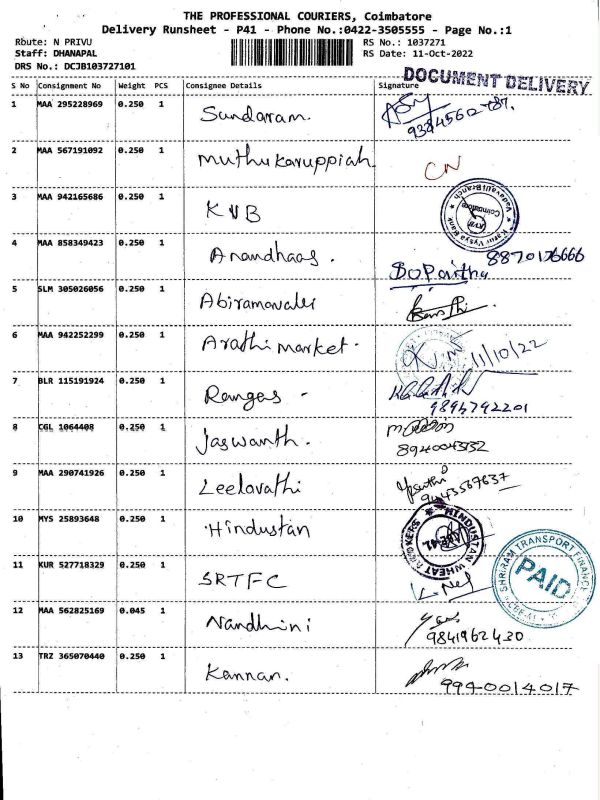 THE PROFESSIONAL COURIERS, Coimbatore
Delivery Runsheet - P41 - Phone No.:0422-3505555 - Page No.:1
Route: N PRIVU
RS No.: 1037271
Staff: DHANAPAL
RS Date: 11-Oct-2022
DRS No.: DCJB103727101
DOCUMENT DELIVERY
S No Consignment No Weight PCS Consignee Details Signature
1 MAA 295228969 0.250 1 Sundaram.
2 MAA 567191092 0.250 1 Muthukaruppiah CN
3 MAA 942165686 0.250 1 KVB
Karur Vysya Bank ★ Vadavalli Branch ★
Coimbatore
KVB
4 MAA 858349423 0.250 1 Anandhaas. 8870176666
5 SLM 305026056 0.250 1 Abiramavalli
6 MAA 942252299 0.250 1 Arathi market. 11/10/22
7 BLR 115191924 0.250 1 Ranges -
9894792201
8 CGL 1064408 0.250 1 Jaswanth.
9 MAA 290741926 0.250 1 Leelavathi
9443569637
10 MYS 25893648 0.250 1 Hindustan
HINDUSTAN WHEAT
11 KUR 527718329 0.250 1 SRTFC
SHRIRAM TRANSPORT FINANCE
PAID
12 MAA 562825169 0.045 1 Nandhini
9841962430
13 TRZ 365070440 0.250 1 Kannan.
9940014017